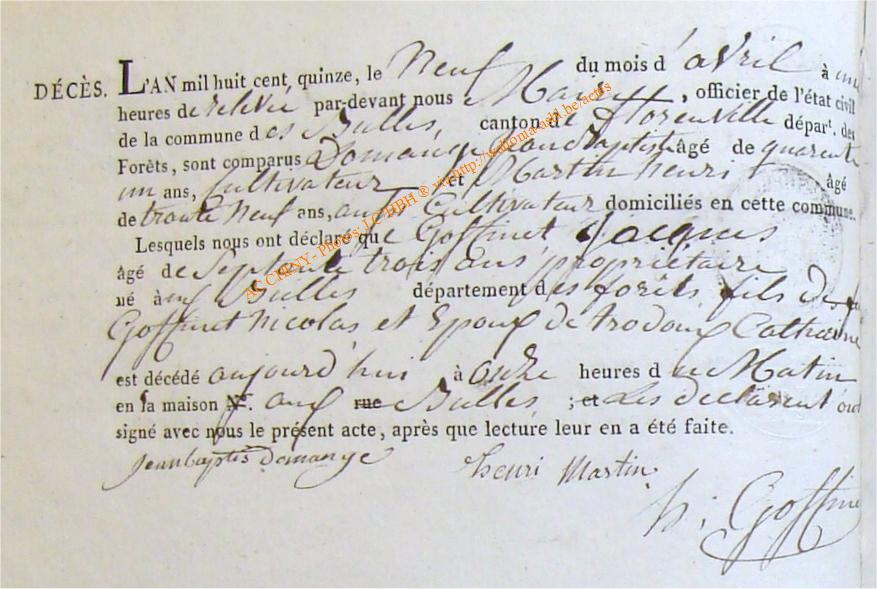 DÉCÈS. L'AN mil huit cent quinze, le Neuf du mois d'avril à une
heures de relevé par-devant nous Maire, officier de l'état civil
de la commune des Bulles, canton de florenville départ. des
Forêts, sont comparus Domange Jean Baptist âgé de quarente
un ans, Cultivateur et Martin henri âgé
de trante Neuf ans, aussi Cultivateur domiciliés en cette commune.
Lesquels nous ont déclaré que Goffinet Jacques
âgé de Septente trois ans propriétaire
né à Bulles département des forêts, fils de feu
Goffinet Nicolas et Epoux de trodoux Catherine
est décédé aujourd'hui à onze heures du Matin
en la maison N°. aux rue Bulles ; et Les déclarent ont
signé avec nous le présent acte, après que lecture leur en a été faite.
Jean baptis Domange henri Martin
h; Goffine
AS CHINY - Photos J.C HBH ® via http://lahoma-aehl.be/actes